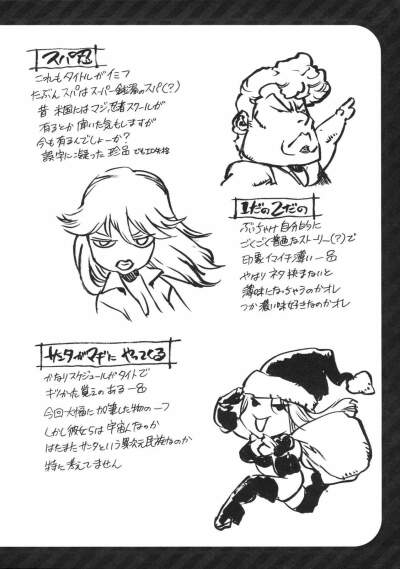 スパ忍
これもタイトルがイミフ
たぶんスパはスーパー銭湯のスパ(?)
昔 米国にはマジ忍者スクールが
有るとか聞いた気もしますが
今も有るんでしょーか?
誤字に凝った珍品でもエロ本格
1だの2だの
ぶっちゃけ自分的に
ごくごく普通なストーリー(?)で
印象イマイチ薄い一品
やはりネタ挟まないと
薄味になっちゃうのかオレ
つか濃い味好きなのかオレ
サンタがマギにやってくる
かなりスケジュールがタイトで
キツかった覚えのある一品
今回大幅に加筆した物の一つ
しかし彼女らは宇宙人なのか
はたまたサンタという異次元民族なのか
特に考えてません